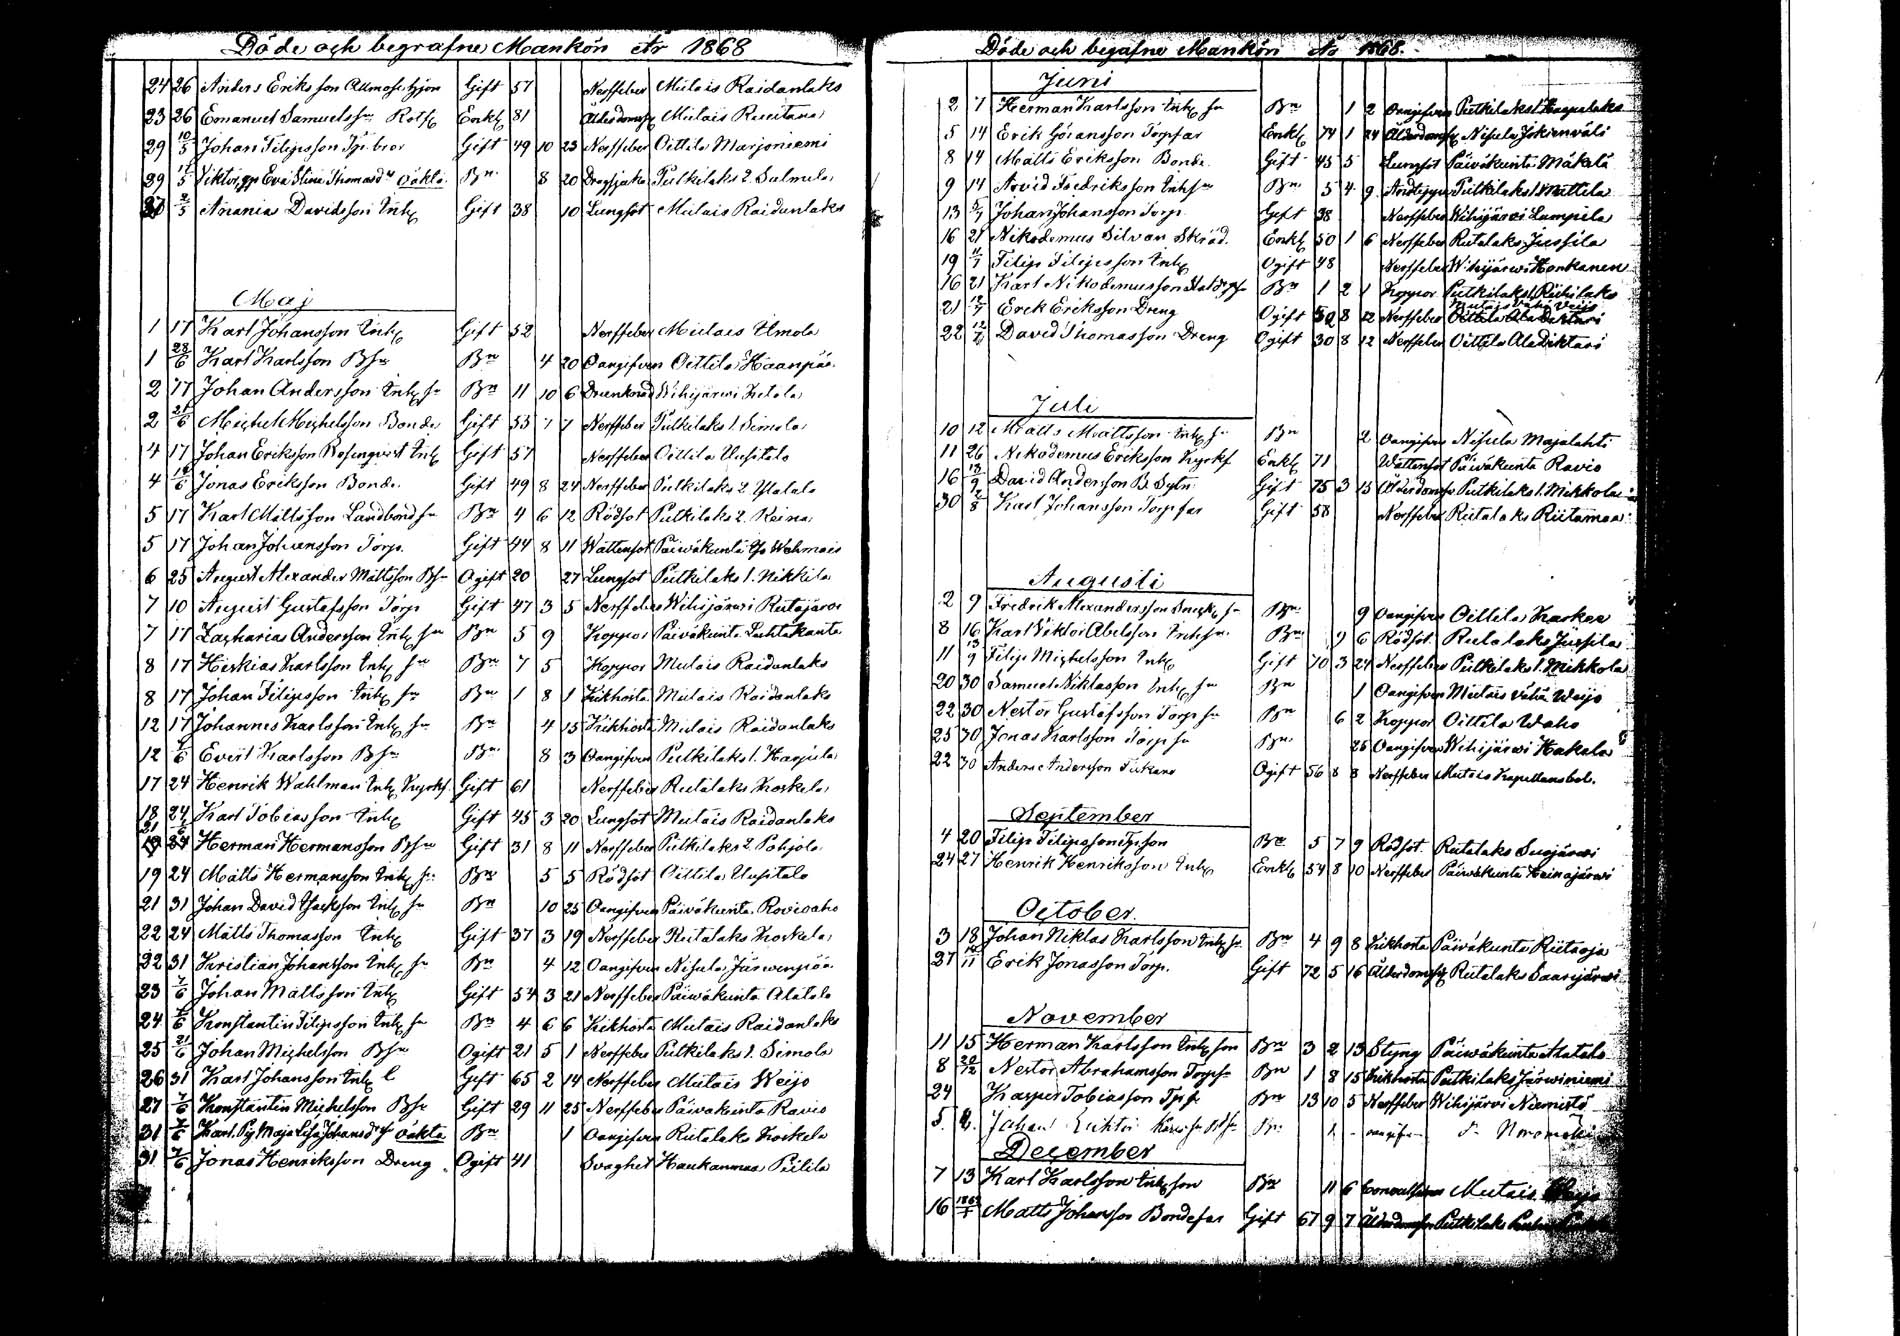 Döde och begrafne Mankön År 1868
24 26 Anders Eriksson Gift 57 Nerffeber Mutais Raidanlaks
23 26 Emanuel Samuelss:n Enkl 81 Mutais
29 10/5 Johan Filipsson Gift 49 10 23 Nerffeber Oittila Marjoniemi
29 11/5 Viktor, Eva Stina Thomasd:r oäkta Bn 8 20 Putkilaks 2. Salmela
2/5 Anania Davidsson Inh Gift 38 10 Lungsot Mutais Raidanlaks
Maj
1 17 Karl Johansson Inh Gift 52 Nerffeber Mutais Ylmola
1 28/6 Karl Karlsson Bsn Bn 4 20 Oangifven Oittila Haanpää
2 17 Johan Andersson Inh sn Bn 11 10 6 Drunknad Wihijärvi Ketola
2 21/6 Michel Michelsson Bonde Gift 55 7 7 Nerffeber Putkilaks 1. Simola
4 17 Johan Eriksson Rosenqvist Inh Gift 57 Nerffeber Oittila Uusitalo
4 14/6 Jonas Eriksson Bonde Gift 49 8 24 Nerffeber Putkilaks 2. Ylatalo
5 17 Karl Mattsson Landbond sn Bn 4 6 12 Rödsot Putkilaks 2. Reina
5 17 Johan Johansson Torp. Gift 44 8 11 Wattensot Päiväkunta Wehmais
6 25 August Alexander Mattsson Bsn Ogift 20 27 Lungsot Putkilaks 1. Nikkila
7 10 August Gustafsson Torp Gift 47 3 5 Nerffeber Wihijärvi Rutajärvi
7 17 Zacharias Andersson Inh sn Bn 5 9 Koppor Päiväkunta Luhtakanta
8 17 Hiskias Karlsson Inh sn Bn 7 5 Koppor Mutais Raidanlaks
8 17 Johan Filipsson Inh sn Bn 1 8 1 Kikhosta Mutais Raidanlaks
12 17 Johannes Karlsson Inh sn Bn 4 15 Kikhosta Mutais Raidanlaks
12 7/6 Evert Karlsson Bsn Bn 8 3 Oangifven Putkilaks 1. Harjula
17 24 Henrik Wahlman Inh Kyrkf Gift 61 Nerffeber Rutalaks Koskela
18 24 Karl Tobiasson Inh Gift 45 3 20 Lungsot Mutais Raidanlaks
21/6 Herman Hermansson Bsn Gift 31 8 11 Nerffeber Putkilaks 2. Pohjola
19 24 Matts Hermansson Inh sn Bn 5 5 Rödsot Oittila Uusitalo
21 31 Johan David Isaksson Inh sn Bn 10 25 Oangifven Päiväkunta Rovioaho
22 24 Matts Thomasson Inh Gift 37 3 19 Nerffeber Rutalaks Koskela
22 31 Kristian Johansson Inh sn Bn 4 12 Oangifven Nisula Järwenpää
23 7/6 Johan Mattsson Inh Gift 54 3 21 Nerffeber Päiwäkunta Alatalo
24 7/6 Konstantin Filipsson Inh sn Bn 4 6 6 Kikhosta Mutais Raidanlaks
25 21/6 Johan Michelsson Bsn Ogift 21 5 1 Nerffeber Putkilaks 1. Simola
26 31 Karl Johansson Inh Gift 65 2 14 Nerffeber Mutais Weijo
27 7/6 Konstantin Michelsson Bsn Gift 29 11 25 Nerffeber Päiväkunta Ravio
31 7/6 Karl, Maja Lisa Johansd:r oäkta Bn 1 Oangifven Rutalaks Koskela
31 7/6 Jonas Henriksson Dreng Ogift 41 Svaghet Haukanmaa Piilila
Döde och begrafne Mankön År 1868.
Juni
2 7 Herman Karlsson Inh sn Bn 1 2 Oangifven Putkilaks 1
5 14 Erik Göransson Torpfar Enkl 74 1 24 Ålderdomsf Nisula Jokienväli
8 14 Matts Eriksson Bonde Gift 45 5 Lungsot Päiväkunta Mäkelä
9 14 Arvid Fredriksson Inh sn Bn 5 4 9 Putkilaks 1. Mattila
13 5/7 Johan Johansson Torp Gift 38 Nerffeber Wihijärvi Lumpila
16 21 Nikodemus Silvan Skräd. Enkl 50 1 6 Nerffeber Rutalaks Jussila
19 11/7 Filip Filipsson Inh Ogift 48 Nerffeber Wihijärvi Honkanen
16 21 Karl Nikodemusson Bn 1 2 1 Koppor Putkilaks 1
21 12/7 Erik Eriksson Dreng Ogift 8 12 Nerffeber Mutais Vähä Veijo
22 12/7 David Thomasson Dreng Ogift 30 8 12 Nerffeber Oittila Aladiktari
Juli
10 12 Matts Mattsson Inh sn Bn 2 Oangifven Nisula Majalahti
11 26 Nikodemus Eriksson Kyrkf Enkl 71 Wattensot Päiväkunta Ravio
16 13/9 David Andersson B. Sytn. Gift 75 3 15 Ålderdomsf Putkilaks 1. Mikkola
30 2/8 Karl Johansson Torpfar Gift 58 Nerffeber Rutalaks Riitamaa
Augusti
2 9 Fredrik Alexandersson sn Bn 9 Oangifven Oittila Karkea
8 16 Karl Viktor Abelsson Inh sn Bn 9 6 Rödsot Rutalaks Jussila
11 13/9 Filip Michelsson Inh Gift 70 3 24 Nerffeber Putkilaks 1. Mikkola
20 30 Samuel Niklasson Inh sn Bn 1 Oangifven Mutais Vähä Weijo
22 30 Nestor Gustafsson Torp sn Bn 6 2 Koppor Oittila Waho
25 30 Jonas Karlsson Torp sn Bn 25 Oangifven Wihijärvi Hakala
22 30 Anders Andersson Ogift 56 8 8 Nerffeber Mutais Kapellansbol.
September
4 20 Filip Filipsson Bn 5 7 9 Rödsot Rutalaks Suojärvi
24 27 Henrik Henriksson Inh Enkl 54 8 10 Nerffeber Päiwäkunta Heinäjärvi
October.
3 18 Johan Niklas Karlsson Inh sn Bn 4 9 8 Kikhosta Päiväkunta Rutaoja
27 /11 Erik Jonasson Torp. Gift 72 5 16 Ålderdomsf Rutalaks Saarijärvi
November
11 15 Herman Karlsson Inh son Bn 3 2 13 Styng Päiwäkunta Alatalo
8 20/12 Nestor Abrahamsson Torpsn Bn 1 8 15 Kikhosta Putkilaks Järwiniemi
24 Kasper Tobiasson Bn 13 10 5 Nerffeber Wihijärvi Niemistö
5. Johan Bn 1 - oangifven
December
7 13 Karl Karlsson Inh son Bn 11 6 Mutais
16 1869/1 Matts Johansson Bondefar Gift 67 9 7 Ålderdomsf Putkilaks